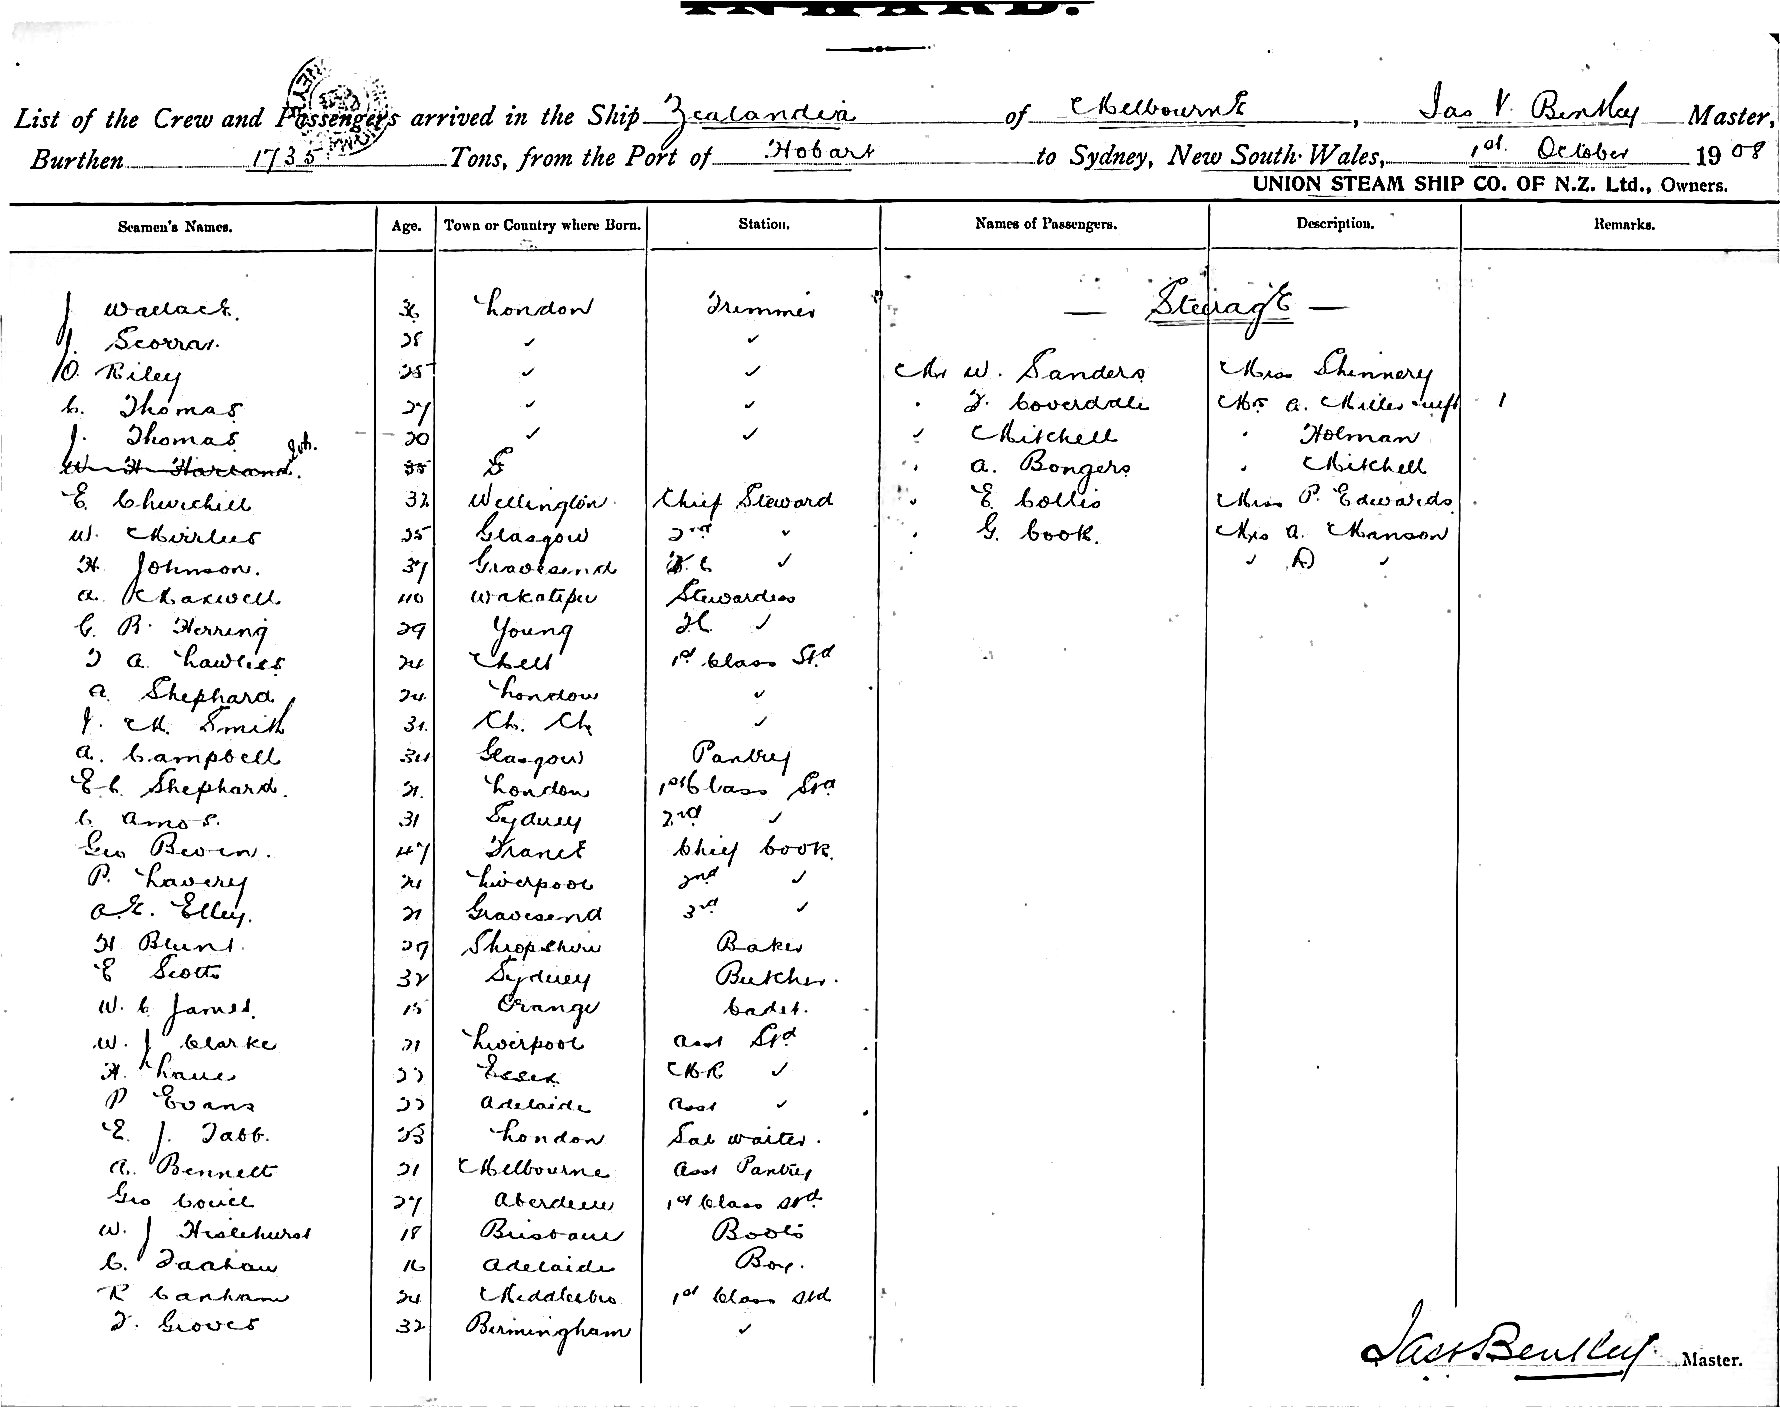 INWARD.
List of the Crew and Passengers arrived in the Ship Zealandia of Melbourne, Jas V. Bentley Master,
Burthen 1735 Tons, from the Port of Hobart to Sydney, New South Wales, 1st October 1908
UNION STEAM SHIP CO. OF N.Z. Ltd., Owners.
Seamen's Names. Age. Town or Country where Born. Station. Names of Passengers. Description. Remarks.
J Wallace. 36 London Trimmer — Steerage —
J. 25 ✓ ✓
O. Riley 25 ✓ ✓ Mr W. Sanders Miss Shinnery
C. Thomas 27 ✓ ✓ . T. Coverdale Mrs A. Miller & inft 1
J. Thomas 20 ✓ ✓ ✓ Mitchell . Holman
W H Harland. 35 . A. Bongers . Mitchell
E. Churchill 32 Wellington Chief Steward . E Collis Miss P. Edwards
W. Mirrlees 25 Glasgow 2nd ✓ . G. Cook. Mrs A. Manson
H Johnson. 37 Gravesend ✓ ✓ D ✓
A. Maxwell 40 Wakatipu Stewardess
C. R. Herring 29 Young ✓
T A. Lawless 24 1st Class Std
A. Shephard 24 London ✓
J. M. Smith 31. Ch. Ch ✓
A. Campbell 34 Glasgow Pantry
E. C. Shephard. 21. London 1st Class Std
C Amos. 31 Sydney 2nd ✓
Geo Beven. 47 France Chief Cook.
P. Lavery 21 Liverpool 2nd ✓
A. E. Elley. 21 Gravesend 3rd ✓
H Blunt. 29 Shropshire Baker
E Scott 32 Sydney Butcher.
W. C James. 15 Orange Cadet.
W. J Clarke 21 Liverpool Asst Std
H. Lane 22 Essex ✓
P Evans 22 Adelaide Asst ✓
E. J. Tabb. 23 London Sal waiter.
A. Bennett 21 Melbourne Asst Pantry
Geo Coull 27 Aberdeen 1st Class Std
W. J Hislehurst 18 Brisbane Boots
C. 16 Adelaide Boy.
R Canham 24 Middlesbro 1st Class Std
T. Groves 32 Birmingham ✓
Jas V Bentley Master.